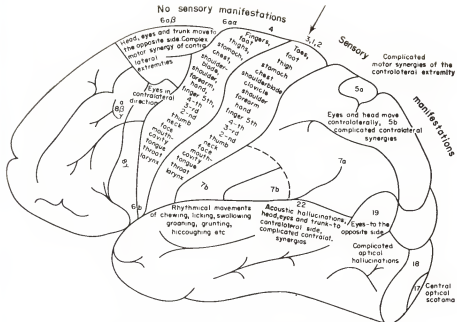 No sensory manifestations
6aβ
6aα
4
3,1,2
Sensory
manifestations
Head, eyes and trunk move to
the opposite side. Complex
motor synergy of contra-
lateral
extremities
Fingers,
foot
thighs,
stomach,
chest,
shoulder-
blade,
shoulder,
forearm,
hand,
finger 5th,
4-th
3-rd
2-nd
thumb
neck
face
mouth-
cavity
tongue
throat
larynx
Toes,
foot
thigh
stomach
chest
shoulderblade
clavicle
shoulder
forearm
hand
finger 5th
4-th
3-rd
2-nd
thumb
neck
face
mouth-
cavity
tongue
throat
larynx
Complicated
motor synergies of the
contralateral extremity
5a
Eyes and head move
contralaterally, 5b
complicated contralateral
synergies
Eyes in
contralateral
direction
α
8β
γ
8γ
6b
7b
7b
7a
Rhythmical movements
of chewing, licking, swallowing
groaning, grunting,
hiccoughing etc
22
Acoustic hallucinations,
head, eyes and trunk-to
contralateral side,
complicated contralat.
synergios
19
Eyes-to the
opposite side
Complicated
optical
hallucinations
18
17
Central
optical
scotoma